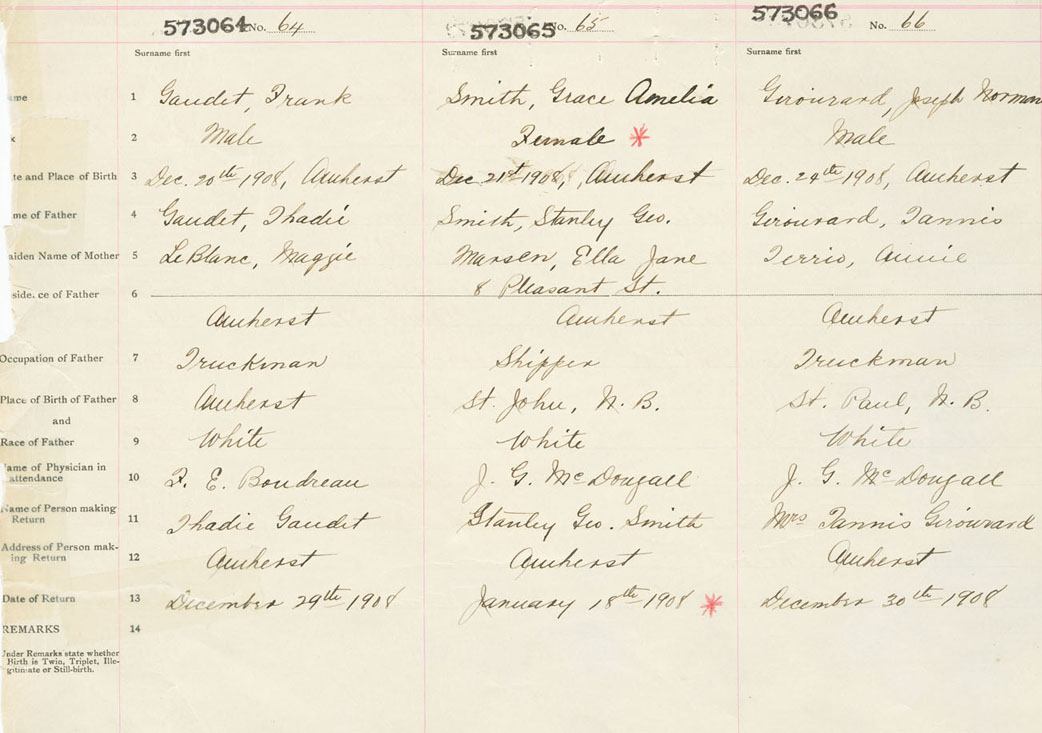 573064 No. 64 573065 No. 65 573066 No. 66
Surname first Surname first Surname first
ame 1 Gaudet, Frank Smith, Grace Amelia Girouard, Joseph Norman
x 2 Male Female * Male
ate and Place of Birth 3 Dec. 20th 1908, Amherst Dec. 21st 1908, Amherst Dec. 24th 1908, Amherst
me of Father 4 Gaudet, Thadié Smith, Stanley Geo. Girouard, Tannis
aiden Name of Mother 5 LeBlanc, Maggie Marsen, Ella Jane Terrio, Annie
8 Pleasant St.
side ce of Father 6
Amherst Amherst Amherst
Occupation of Father 7 Truckman Shipper Truckman
Place of Birth of Father 8 Amherst St. John, N. B. St. Paul, N. B.
and
Race of Father 9 White White White
ame of Physician in
attendance 10 F. E. Boudreau J. G. McDougall J. G. McDougall
Name of Person making
Return 11 Thadie Gaudet Stanley Geo. Smith Mrs Tannis Girouard
Address of Person mak-
ing Return 12 Amherst Amherst Amherst
Date of Return 13 December 29th 1908 January 18th 1908 * December 30th 1908
REMARKS 14
Under Remarks state whether
Birth is Twin, Triplet, Ille-
gitimate or Still-birth.